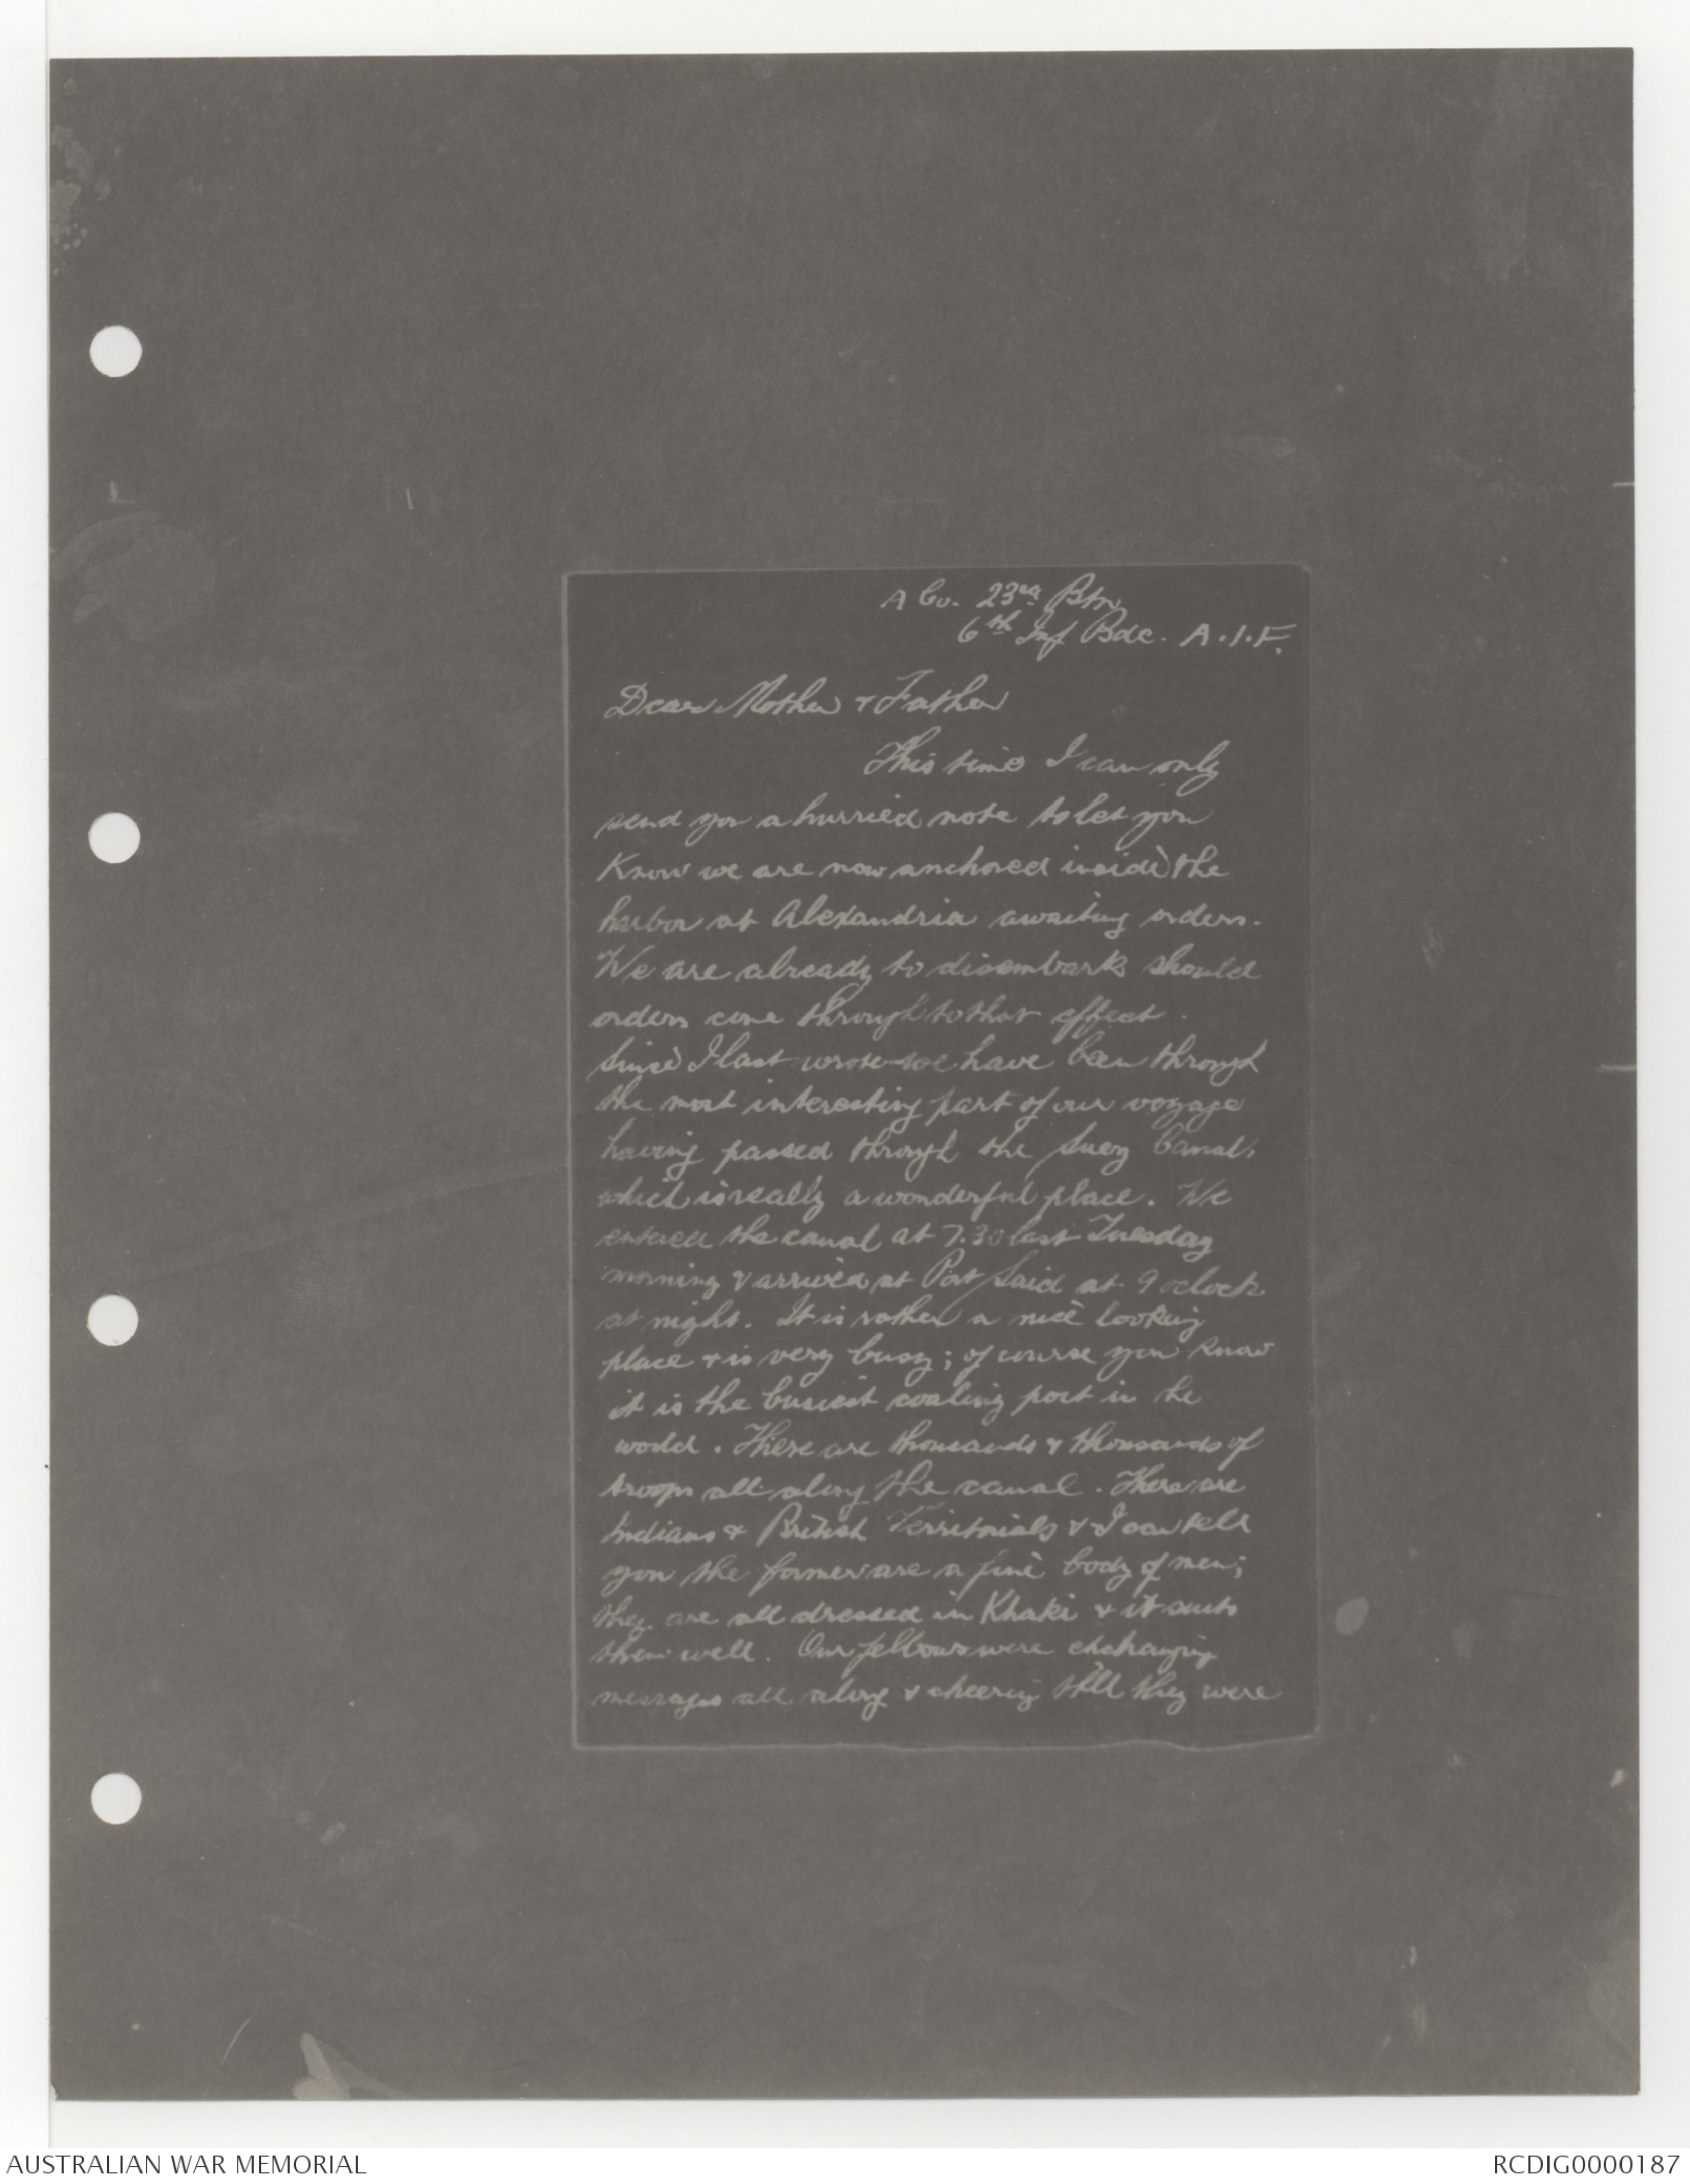 A Co. 23rd Btn
6th Inf Bde. A.I.F.
Dear Mother & Father
This time I can only
send you a hurried note to let you
know we are now anchored inside the
harbor at Alexandria awaiting orders.
We are already to disembark should
orders come through to that effect.
Since I last wrote we have been through
the most interesting part of our voyage
having passed through the Suez Canal,
which is really a wonderful place. We
entered the canal at 7.30 last Tuesday
morning & arrived at Port Said at 9 oclock
at night. It is rather a nice looking
place & is very busy; of course you know
it is the busiest coaling port in the
world. There are thousands & thousands of
troops all along the canal. There are
Indians & British Territorials & I can tell
you the former are a fine body of men;
they are all dressed in Khaki & it suits
them well. Our fellows were exchanging
messages all along & cheering till they were
AUSTRALIAN WAR MEMORIAL
RCDIG0000187